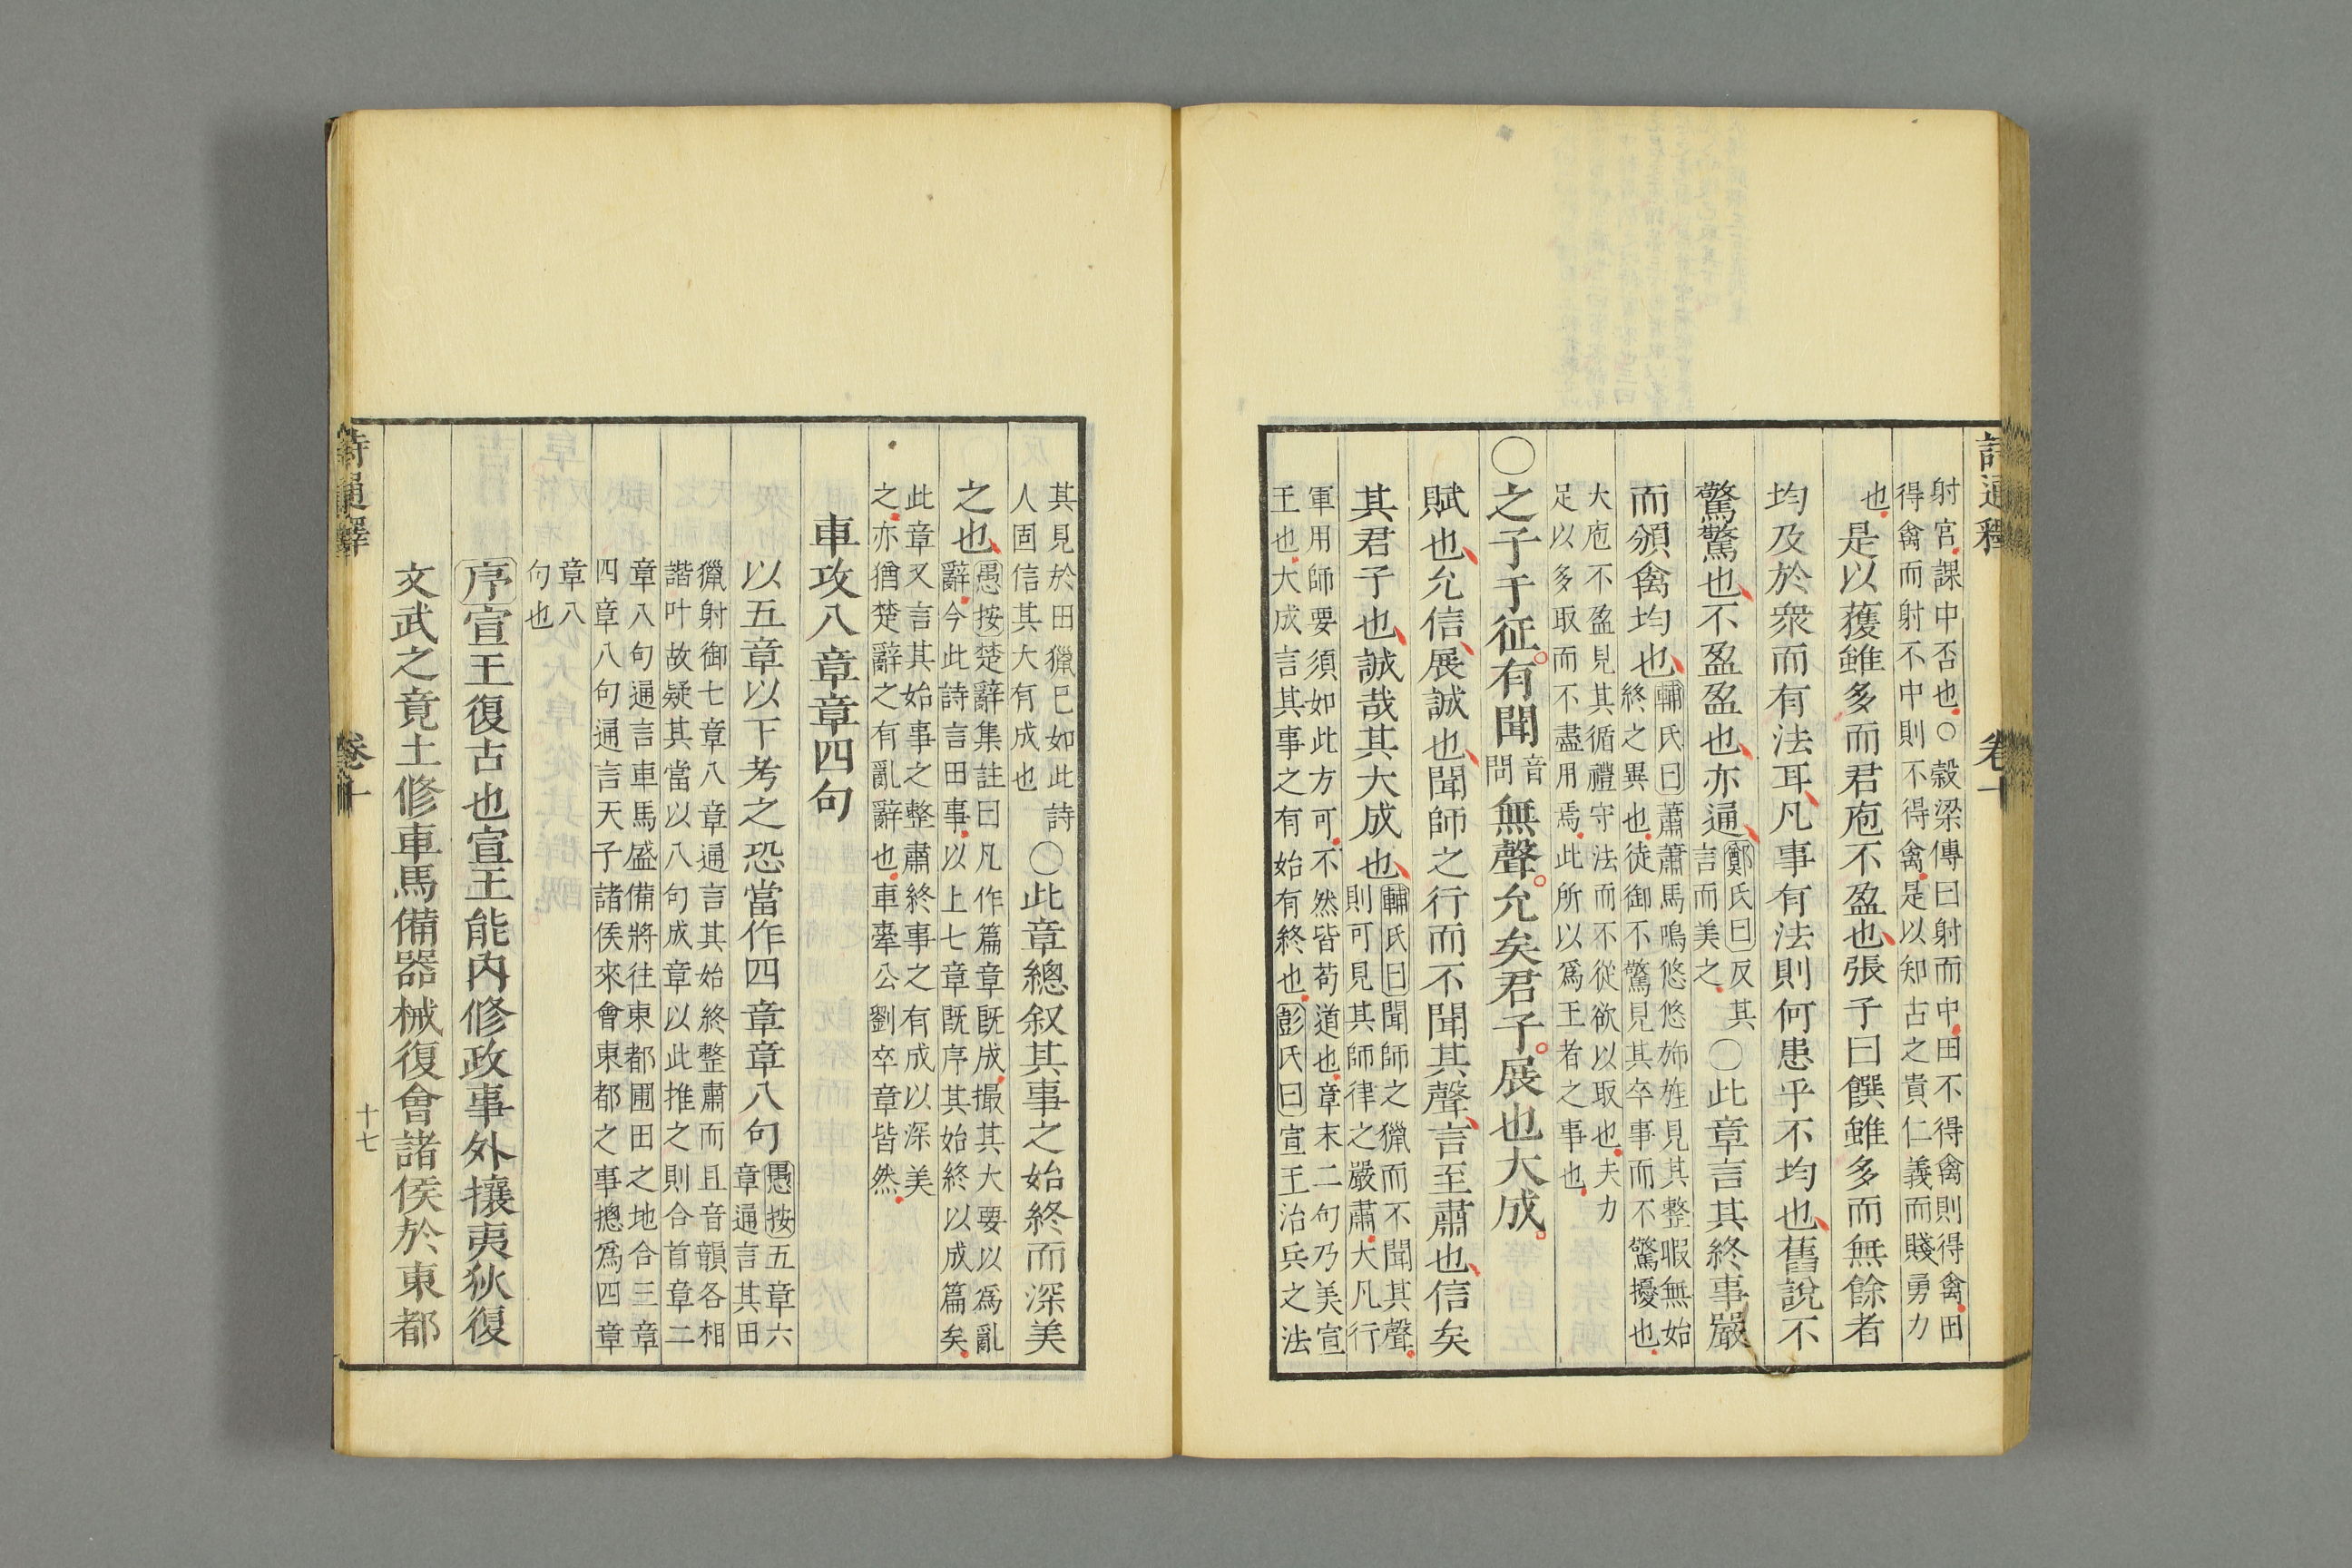 詩通釋 卷十
射宮課中否也○榖梁傳曰射而中田不得禽則得禽田
得禽而射不中則不得禽是以知古之貴仁義而賤勇力
也是以蒦雖多而君庖不盈也張子曰饌雖多而無餘者
均及於衆而有法耳凡事有法則何患乎不均也舊說不
驚驚也不盈盈也亦通鄭氏曰反其
言而美之○此章言其終事嚴
而頒禽均也輔氏曰蕭蕭馬鳴悠悠斾旌見其整暇無始
終之異也徒御不驚見其卒事而不驚擾也
大庖不盈見其循禮守法而不從欲以取也夫力
足以多取而不盡用焉此所以爲王者之事也
○之子于征有聞音問無聲允矣君子展也大成
賦也允信展誠也聞師之行而不聞其聲言至肅也信矣
其君子也誠哉其大成也輔氏曰聞師之獵而不聞其聲
則可見其師律之嚴肅大凡行
軍用師要須如此方可不然皆苟道也章末二句乃美宣
王也大成言其事之有始有終也彭氏曰宣王治兵之法
其見於田獵已如此詩
人固信其大有成也○此章總叙其事之始終而深美
之也愚按楚辭集註曰凡作篇章既成撮其大要以爲亂
辭今此詩言田事以上七章既序其始終以成篇矣
此章又言其始事之整肅終事之有成以深美
之亦猶楚辭之有亂辭也車舝公劉卒章皆然
車攻八章章四句
以五章以下考之恐當作四章章八句愚按五章六
章通言其田
獵射御七章八章通言其始終整肅而且音韻各相
諧叶故疑其當以八句成章以此推之則合首章二
章八句通言車馬盛備將往東都圃田之地合三章
四章八句通言天子諸侯來會東都之事摠爲四章
章八
句也
序宣王復古也宣王能內修政事外攘夷狄復
文武之竟土修車馬備器械復會諸侯於東都
詩通釋 卷十 十七